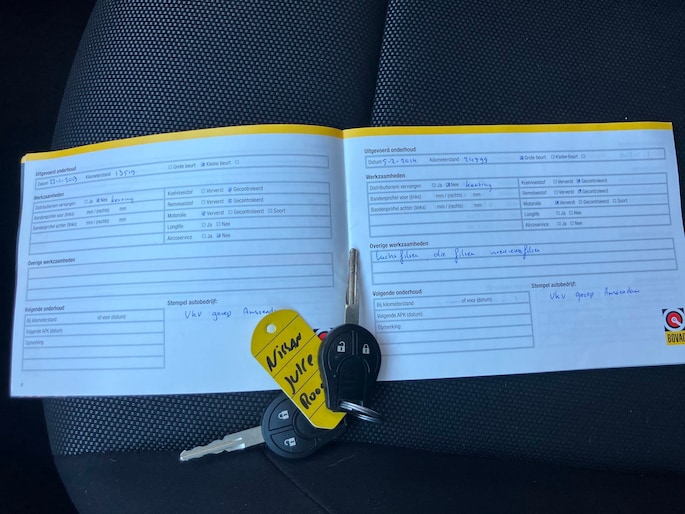 Uitgevoerd onderhoud
Datum Kilometerstand 13509 Grote beurt Kleine beurt
Werkzaamheden
Distributieriem vervangen Ja Nee ketting
Bandenprofiel voor (links) mm / (rechts) mm
Bandenprofiel achter (links) mm / (rechts) mm
Koelvloeistof Ververst Gecontroleerd
Remvloeistof Ververst Gecontroleerd
Motorolie Ververst Gecontroleerd Soort
Longlife Ja Nee
Aircoservice Ja Nee
Overige werkzaamheden
Volgende onderhoud
Bij kilometerstand of voor (datum)
Volgende APK (datum)
Opmerking
Stempel autobedrijf:
Vkv groep Amsterdam
Uitgevoerd onderhoud
Datum 5-2-2014 Kilometerstand 24999 Grote beurt Kleine beurt
Werkzaamheden
Distributieriem vervangen Ja Nee ketting
Bandenprofiel voor (links) mm / (rechts) mm
Bandenprofiel achter (links) mm / (rechts) mm
Koelvloeistof Ververst Gecontroleerd
Remvloeistof Ververst Gecontroleerd
Motorolie Ververst Gecontroleerd Soort
Longlife Ja Nee
Aircoservice Ja Nee
Overige werkzaamheden
Lucht filter olie filter interieurfilter
Volgende onderhoud
Bij kilometerstand of voor (datum)
Volgende APK (datum)
Opmerking
Stempel autobedrijf:
Vkv groep Amsterdam
BOVAG
Nissan
Juice